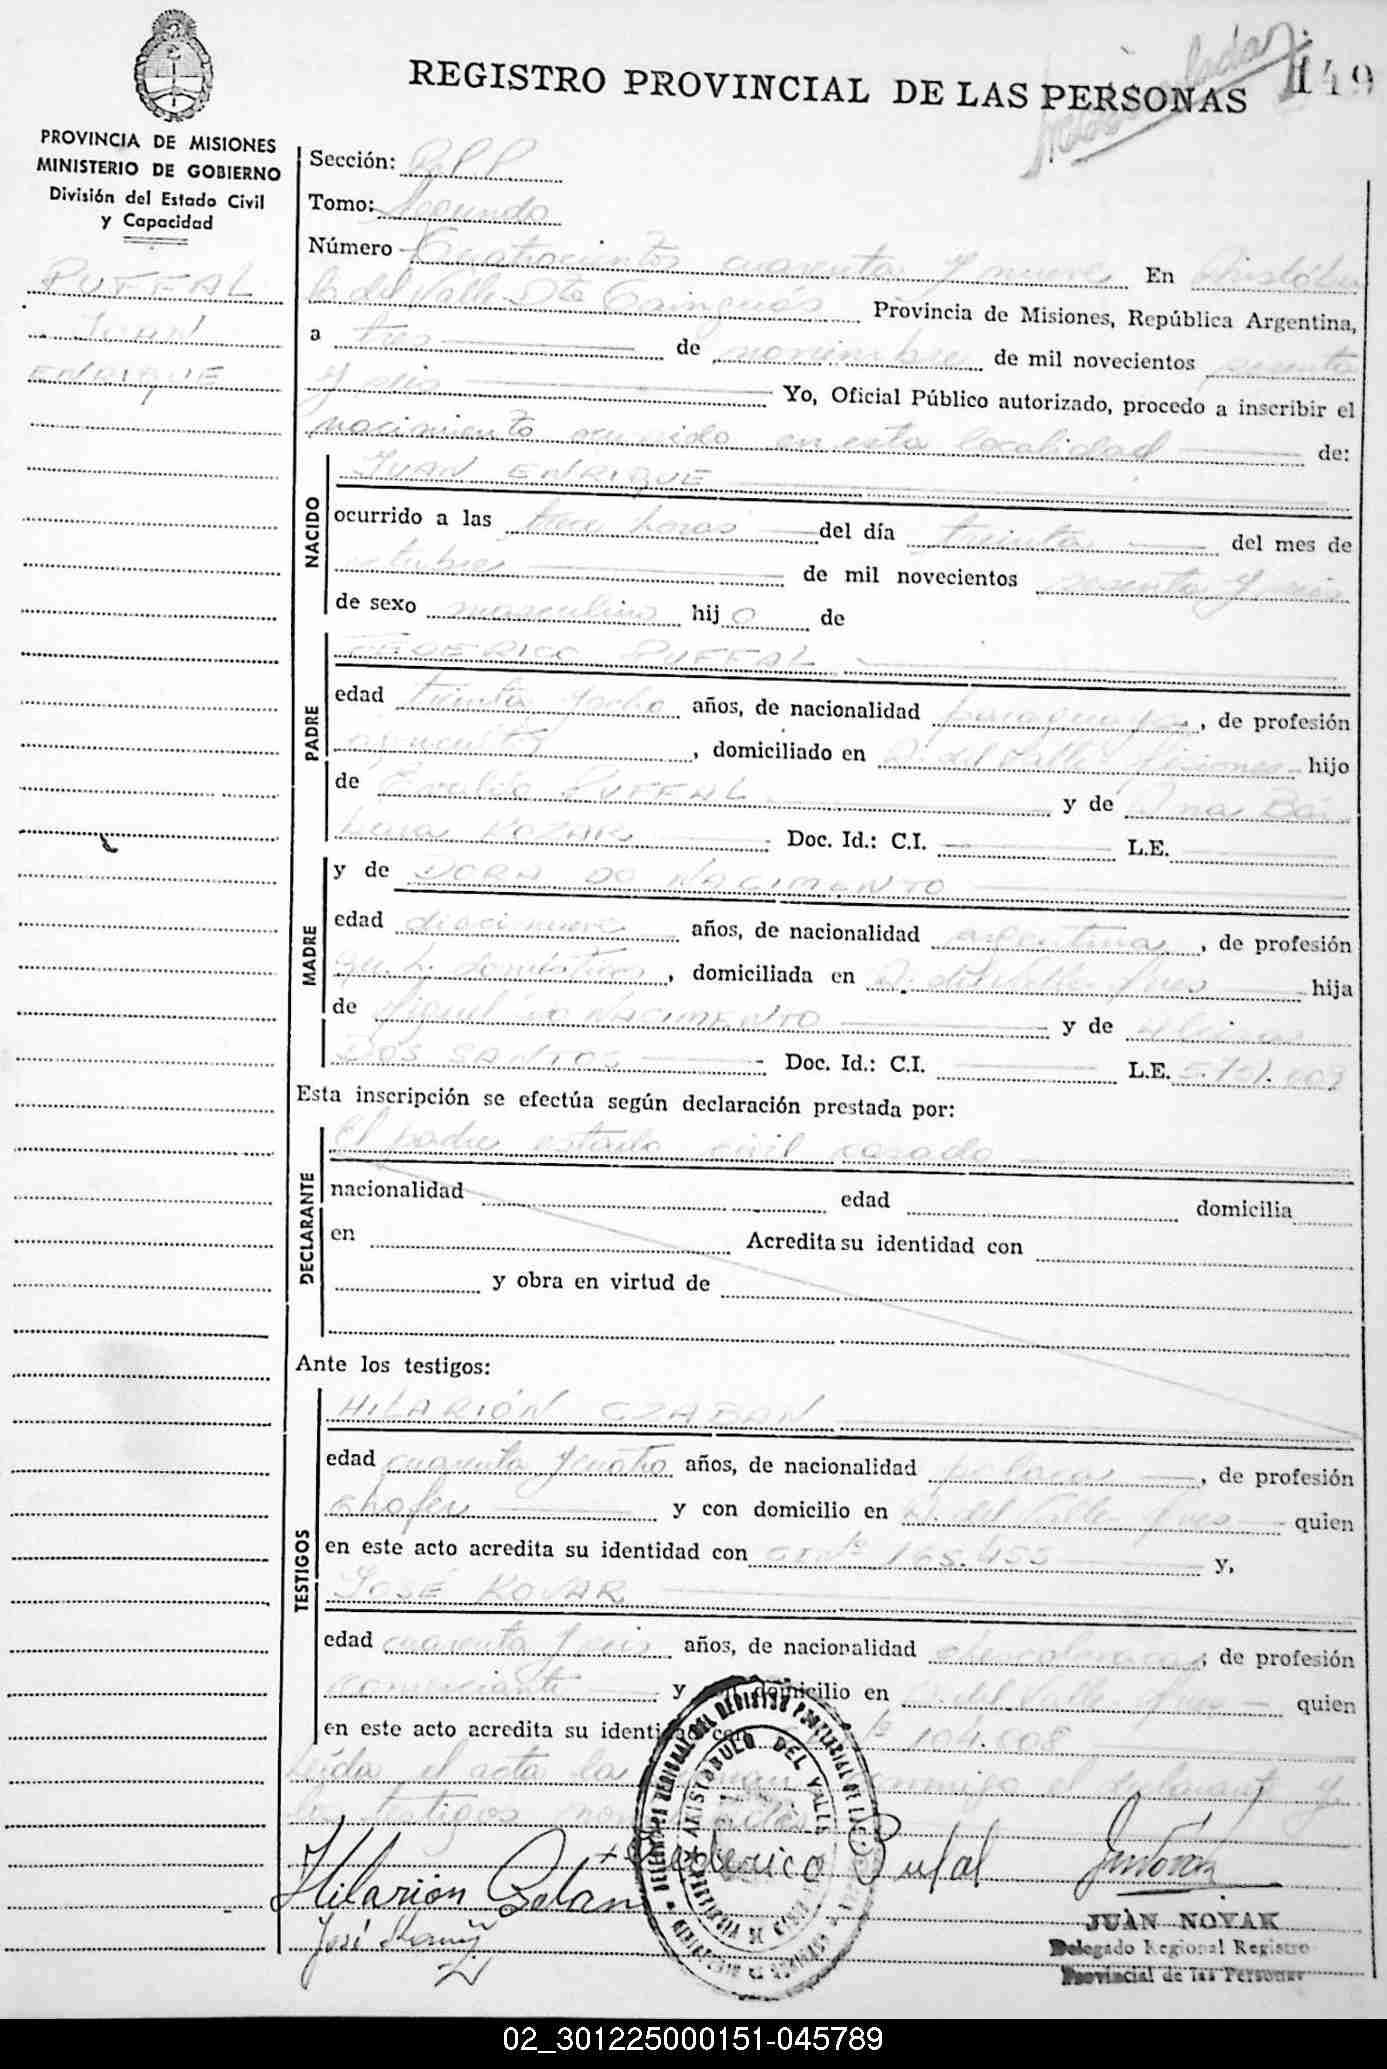 REGISTRO PROVINCIAL DE LAS PERSONAS
149
PROVINCIA DE MISIONES
MINISTERIO DE GOBIERNO
División del Estado Civil
y Capacidad
PUFFAL
JUAN
ENRIQUE
Sección:
Tomo: Segundo
Número Cuatrocientos cuarenta y nueve En Aristóbu
lo del Valle Dto Cainguás Provincia de Misiones, República Argentina,
a tres de noviembre de mil novecientos sesenta
y seis Yo, Oficial Público autorizado, procedo a inscribir el
nacimiento ocurrido en esta localidad de:
NACIDO
JUAN ENRIQUE
ocurrido a las trece horas del día treinta del mes de
octubre de mil novecientos sesenta y seis
de sexo masculino hijo de
PADRE
FEDERICO PUFFAL
edad treinta y ocho años, de nacionalidad paraguaya, de profesión
agricultor, domiciliado en A. del Valle Misiones hijo
de PUFFAL y de Ana Bár
KOZAR Doc. Id.: C.I. L.E.
MADRE
y de DORA DO NACIMENTO
edad diecinueve años, de nacionalidad argentina, de profesión
qu. h. domésticos, domiciliada en A. del Valle Mnes hija
de Miguel DO NACIMENTO y de
DOS SANTOS Doc. Id.: C.I. L.E. 5.701.009
Esta inscripción se efectúa según declaración prestada por:
DECLARANTE
El padre estado civil casado
nacionalidad edad domicilia
en Acredita su identidad con
y obra en virtud de
Ante los testigos:
TESTIGOS
HILARIÓN CZABAN
edad cuarenta y cuatro años, de nacionalidad polaca, de profesión
chofer y con domicilio en A. del Valle Mnes quien
en este acto acredita su identidad con CI Nº 165.455 y,
JOSÉ KOVAR
edad cuarenta y seis años, de nacionalidad checoslovaca, de profesión
comerciante y con domicilio en A. del Valle Mnes quien
en este acto acredita su identidad con Nº 104.008
Leída el acta la firman conmigo el declarante y
los testigos
Hilarión Czaban Federico Pufal
José
ARISTOBULO DEL VALLE
JUAN NOVAK
Delegado Regional Registro
Provincial de las Personas
02_301225000151-045789